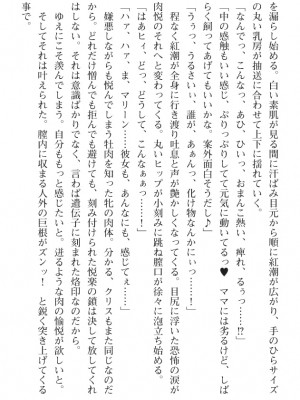 を漏らし始める。白い素肌が見る間に汗ばみ目元から順に紅潮が広がり、手のひらサイズ
の丸い乳房が抽送に合わせて上下に揺れていく。
「なんでっ、こんなっ、あひ、ひっ、おまんこ熱い、痺れ、るぅっ……!?」
「中の感触もいい感じ、ぷりっぷりしてて元気に動いてるっ♥ ママには劣るけど、しば
らく飼ってあげてもいいかな、案外面白そうだしょ」
「うぅっ、うるさいぃ、誰が、あぁんっ、化け物なんかにっ……!」
程なく紅潮が全身に行き渡り吐息と声が艶しくなってくる。目尻に浮いた恐怖の涙が
肉悦のそれへと変わってくる。丸いヒップが小刻みに跳ね膣口が徐々に泡立ち始める。
「はあヒィ、どっ、どうして、こんなぁぁっ……!」
「ハァ、ハァ、ま、マリーン……彼女も、あんなにも、感じてぇ……」
嫌悪しながらも悦んでしまう牡肉を知った牝の肉体。分かる、クリスもまた同じなのだ
から。どれだけ憎んでも拒んでも避けても、刻み付けられた悦楽の鎖は決して放してくれ
はしない。それは意識ばかりでなく、言わば遺伝子に刻まれた烙印なのだ。
ゆえにこそ羨んでしまう。自分ももっと感じたいと。迸るような肉の愉悦が欲しいと。
そしてそれは叶えられた。膣内に収まる人外の巨根がズンッ! と鋭く突き上げてくる
事で。